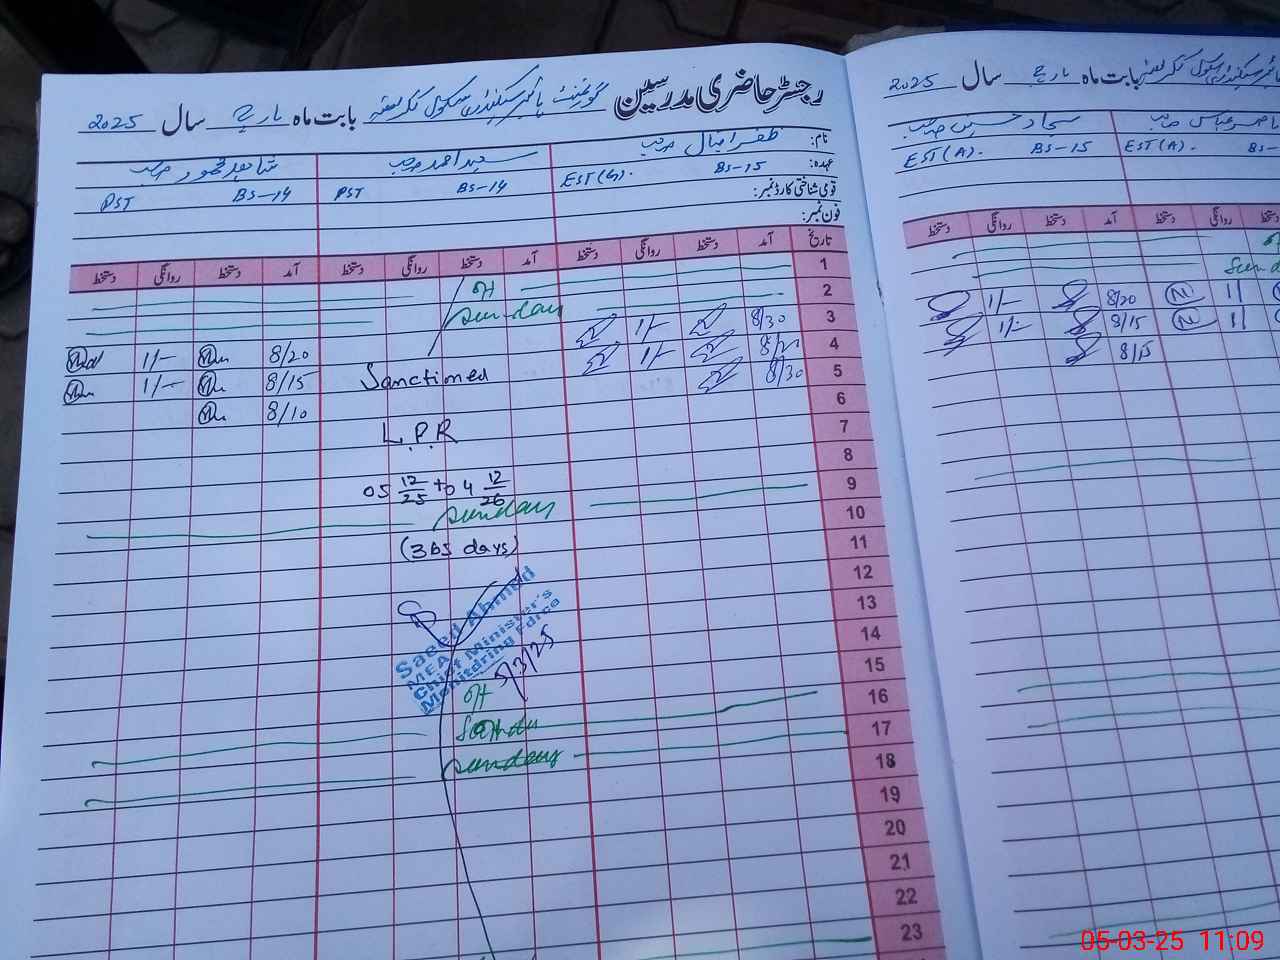 رجسٹر حاضری مدرسین گورنمنٹ ہائیر سیکنڈری سکول بابت ماہ مارچ سال 2025
نام: ظفر اقبال صاحب سعید احمد صاحب شاہد محمود صاحب
عہدہ: EST(G). BS-15 PST BS-14 PST BS-14
قومی شناختی کارڈ نمبر:
فون نمبر:
تاریخ آمد دستخط روانگی دستخط آمد دستخط روانگی دستخط آمد دستخط روانگی دستخط
1
2 Sunday
3 8/30 1/- 8/20 1/-
4 1/- 8/15 1/-
5 8/30 8/10
Sanctioned
6
7 L.P.R
8
9 05 12/25 to 04 12/26
Sunday
10
11 (365 days)
12
13
14
15
16
17
18 Sunday
19
20
21
22
23
Saeed Ahmed
MEA
Chief Minister's
Monitoring Force
5/3/25
بابت ماہ مارچ سال 2025
سجاد حسین صاحب
EST(A). BS-15 EST(A). BS-
دستخط روانگی دستخط آمد دستخط روانگی
1/- 8/20 1/
1/- 8/15 1/
8/15
05-03-25 11:09